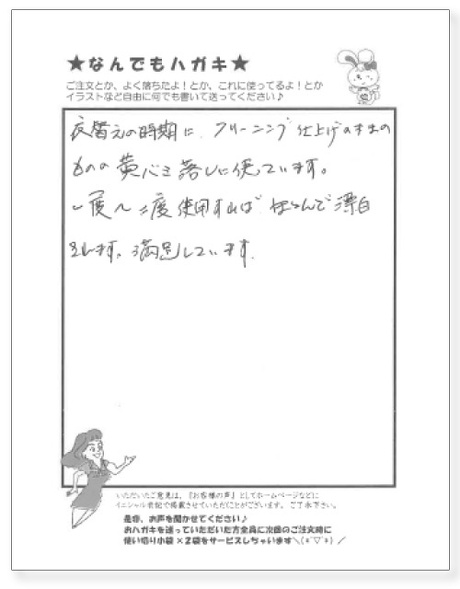 ★なんでもハガキ★
ご注文とか、よく落ちたよ！とか、これに使ってるよ！とか
イラストなど自由に何でも書いて送ってください♪
衣替えの時期に、クリーニング仕上げのままの
ものの黄バミ落しに使ています。
一度〜二度使用すれば ほとんで漂白
します。満足しています。
いただいたご意見は、『お客様の声』としてホームページなどに
イニシャル表記で掲載させていただくことがございます。ご了承下さい。
是非、お声を聞かせてください♪
おハガキを送っていただいた方全員に次回のご注文時に
使い切り小袋×2袋をサービスしちゃいます＼(*ﾟ▽ﾟ*)／